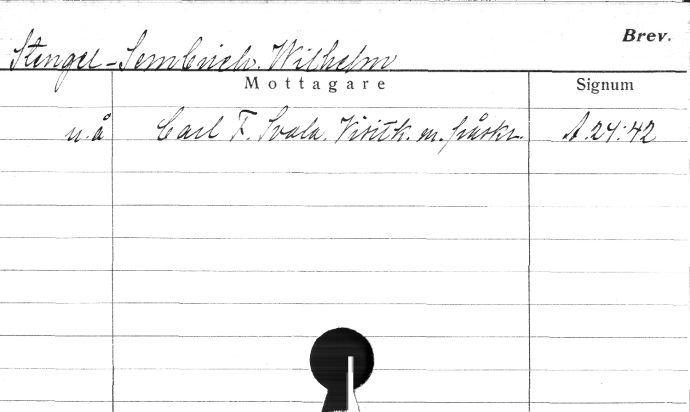 Brev.
Stengel-Sembrich, Wilhelm
Mottagare Signum
u.å Carl F. Svala. Visitk. m. påskr. A.24:42